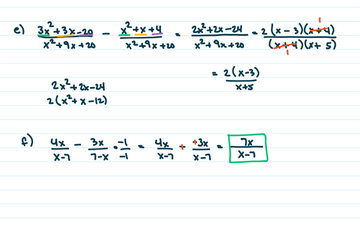 e) (3x²+3x-20)/(x²+9x+20) - (x²+x+4)/(x²+9x+20) = (2x²+2x-24)/(x²+9x+20) = 2(x-3)(x+4)/(x+4)(x+5) 1 1
= 2(x-3)/(x+5)
2x²+2x-24
2(x²+x-12)
f) 4x/(x-7) - 3x/(7-x) · -1/-1 = 4x/(x-7) + +3x/(x-7) = 7x/(x-7)